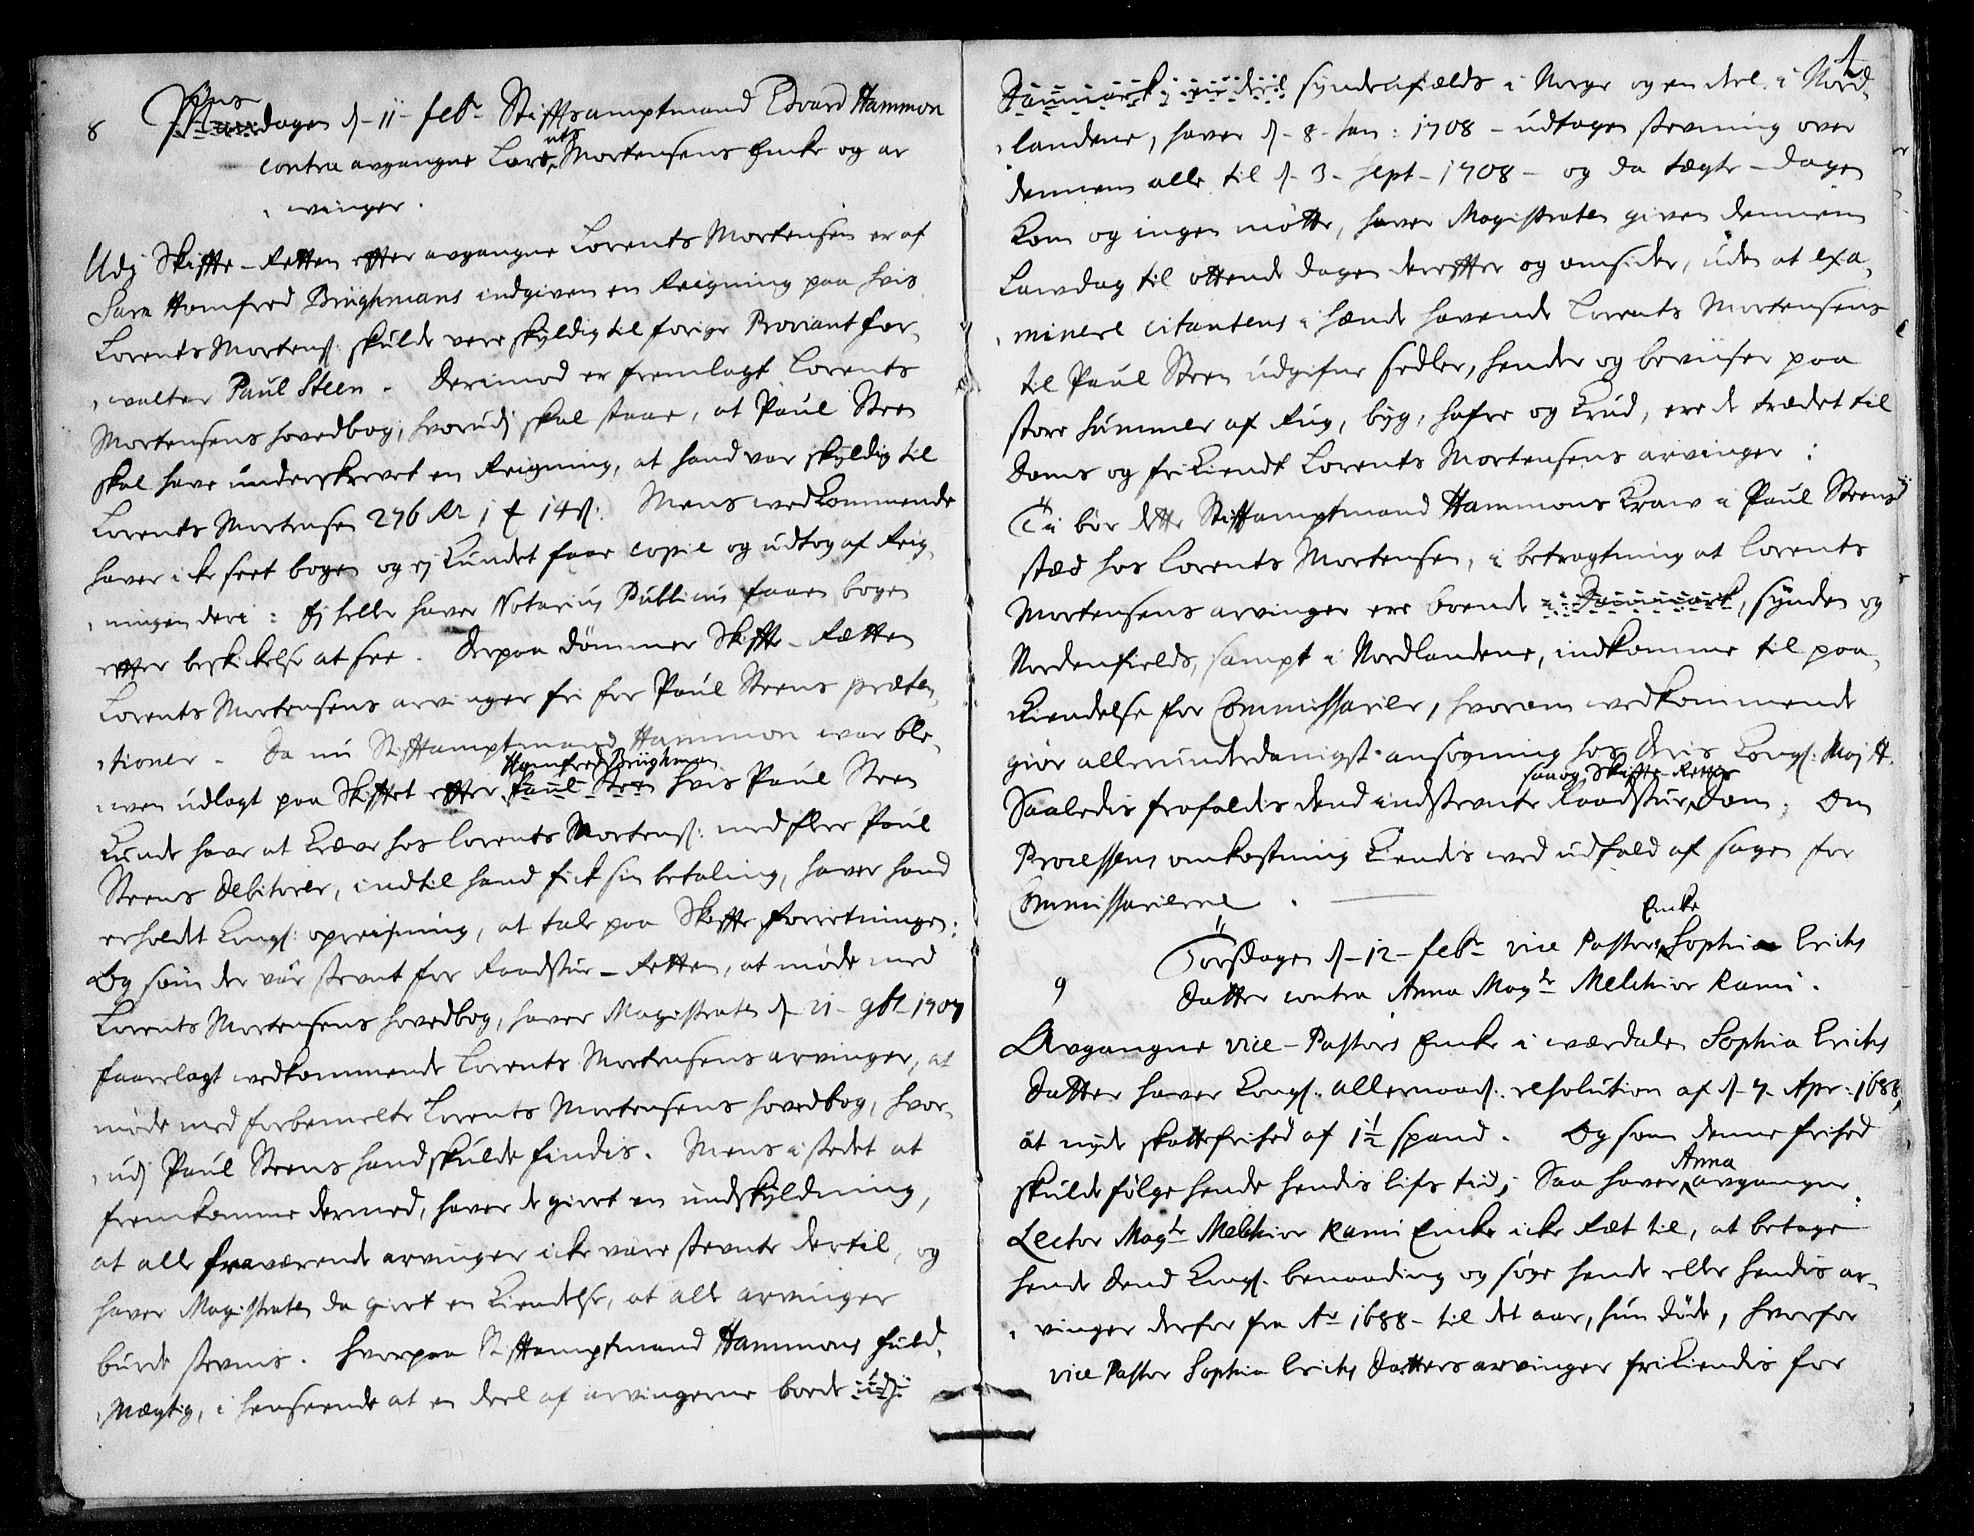 8 Onsdagen d. 11 febr. Stifftsamptmand Edvard Hammon
contra avgangne Lorents Mortensens Encke og ar
winger.
Udj Skiffte-Retten effter avgangne Lorents Mortensen er af
Sare Homfred Brüghmans indgiven en Reigning paa hvis
Lorents Mortens: skulde vere skyldig til forige Proviant for,
walter Paul Steen. Derimod er fremlagt Lorents
Mortensens hovedbog, hvorudj skal staae, at Paul Steen
skal have underskrevet en Reigning, at hand var skyldig til
Lorents Mortensen 276 Rdr 1 ort 14 s: Mens wedkommende
haver icke seet bogen og ej kundet faae copie og udtog af Reig,
ningen deri: Ej heller haver Notarius Publicus faaen bogen
effter beskickelse at see. Derpaa dømmer Skiffte-Retten
Lorents Mortensens arvinger fri for Paul Steens præten,
tioner. Da nu Stifftamptmand Hammon war ble,
wen udlagt paa Skifftet effter Homfred Brüghman hvis Paul Steen
kunde have at kræve hos Lorents Mortens: med flere Paul
Steens Debitorer, indtil hand fick sin betaling, haver hand
erholdet Kongl: opreisning, at tale paa Skiffte forretningen:
Og som der var stevnt for Raadstue-Retten, at møde med
Lorents Mortensens hovedbog, haver Magistraten d. 21 9br 1707
foorelagt wedkommende Lorents Mortensens arvinger, at
møde med forbemelte Lorents Mortensens hovedbog, hvor,
udj Paul Steens hand skulde findis. Mens i stedet at
fremkomme dermed, haver de giort en undskyldning,
at alle fraværende arvinger icke vare stevnte dertil, og
haver Magistraten da giort en Kiendelse, at alle arvinger
burde stevnis. Hvorpaa Stifftamptmand Hammons fuld,
Mægtig, i henseende at en deel af arvingerne boede udj
1
Danmark, en deel syndenfields i Norge og en deel i Nord,
landene, haver d. 8 Jan: 1708 udtagen stevning over
dennem alle til d. 3 Sept. 1708 og da tægte-dagen
kom og ingen mötte, haver Magistraten given dennem
Lawdag til ottende dagen dereffter og omsider, uden at exa,
minere Citantens i hænde havende Lorents Mortensens
til Paul Steen udgifne sedler, hender og beviiser paa
store summer af Rug, byg, hafre og Krud, ere de trædet til
doms og frikiendt Lorents Mortensens arvinger:
Saa bör dette Stifftamptmand Hammons Kraw i Paul Steens
stæd hos Lorents Mortensen, i betragtning at Lorents
Mortensens arvinger ere boende i Danmark, sýnden og
Nordenfields, sampt i Nordlandene, indkomme til paa,
kiendelse for Commissarier, hvorom wedkommende
giör allerunderdanigst ansögning hos deris Kongl: Majtt.
Saaledis frafaldis dend indstevnte Raadstue, saa og Skiffte-Rettes Dom, Om
Processens omkostning kiendis wed udfald af sagen for
Commissarierne.
9 Torsdagen d. 12 febr. vice Pastors Encke Sophia Erichs
Datter contra Anna Magr Melchior Rami.
Avgangne vice-Pastors Encke i wærdalen Sophia Erichs
Datter haver Kongl. allernaad: resolution af d. 7 Apr. 1688,
at nýde skattefrihed af 1½ spand. Og som denne frihed
skulde fölge hende hendis lifs tid; Saa haver Anna avgangne
Lector Magr Melchior Rami Encke icke Ræt til, at betage
hende dend Kongl. benaading og söge hende eller hendis ar,
vinger derfor fra Ao 1688 til det aar, hun döde, hvorfor
vice Pastor Sophia Erichs Datters arvinger frikiendis for